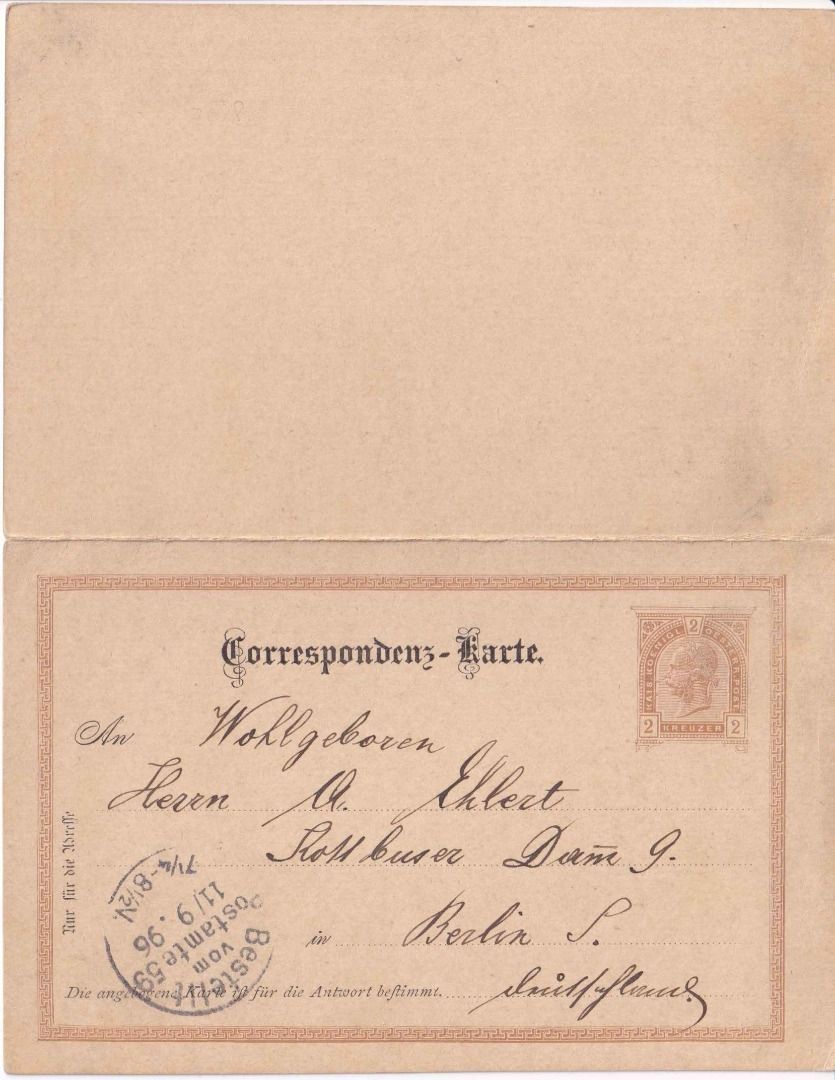 Correspondenz-Karte.
2
KAIS. KOENIGL. OESTERR. POST
2 KREUZER 2
An Wohlgeboren
Herrn A. Ehlert
Kottbuser Dam̅ 9.
in Berlin S.
Deutschland
Nur für die Adresse
Die angebogene Karte ist für die Antwort bestimmt.
Bestellt
vom
Postamte 59
11/9. 96
7¼-8½V.